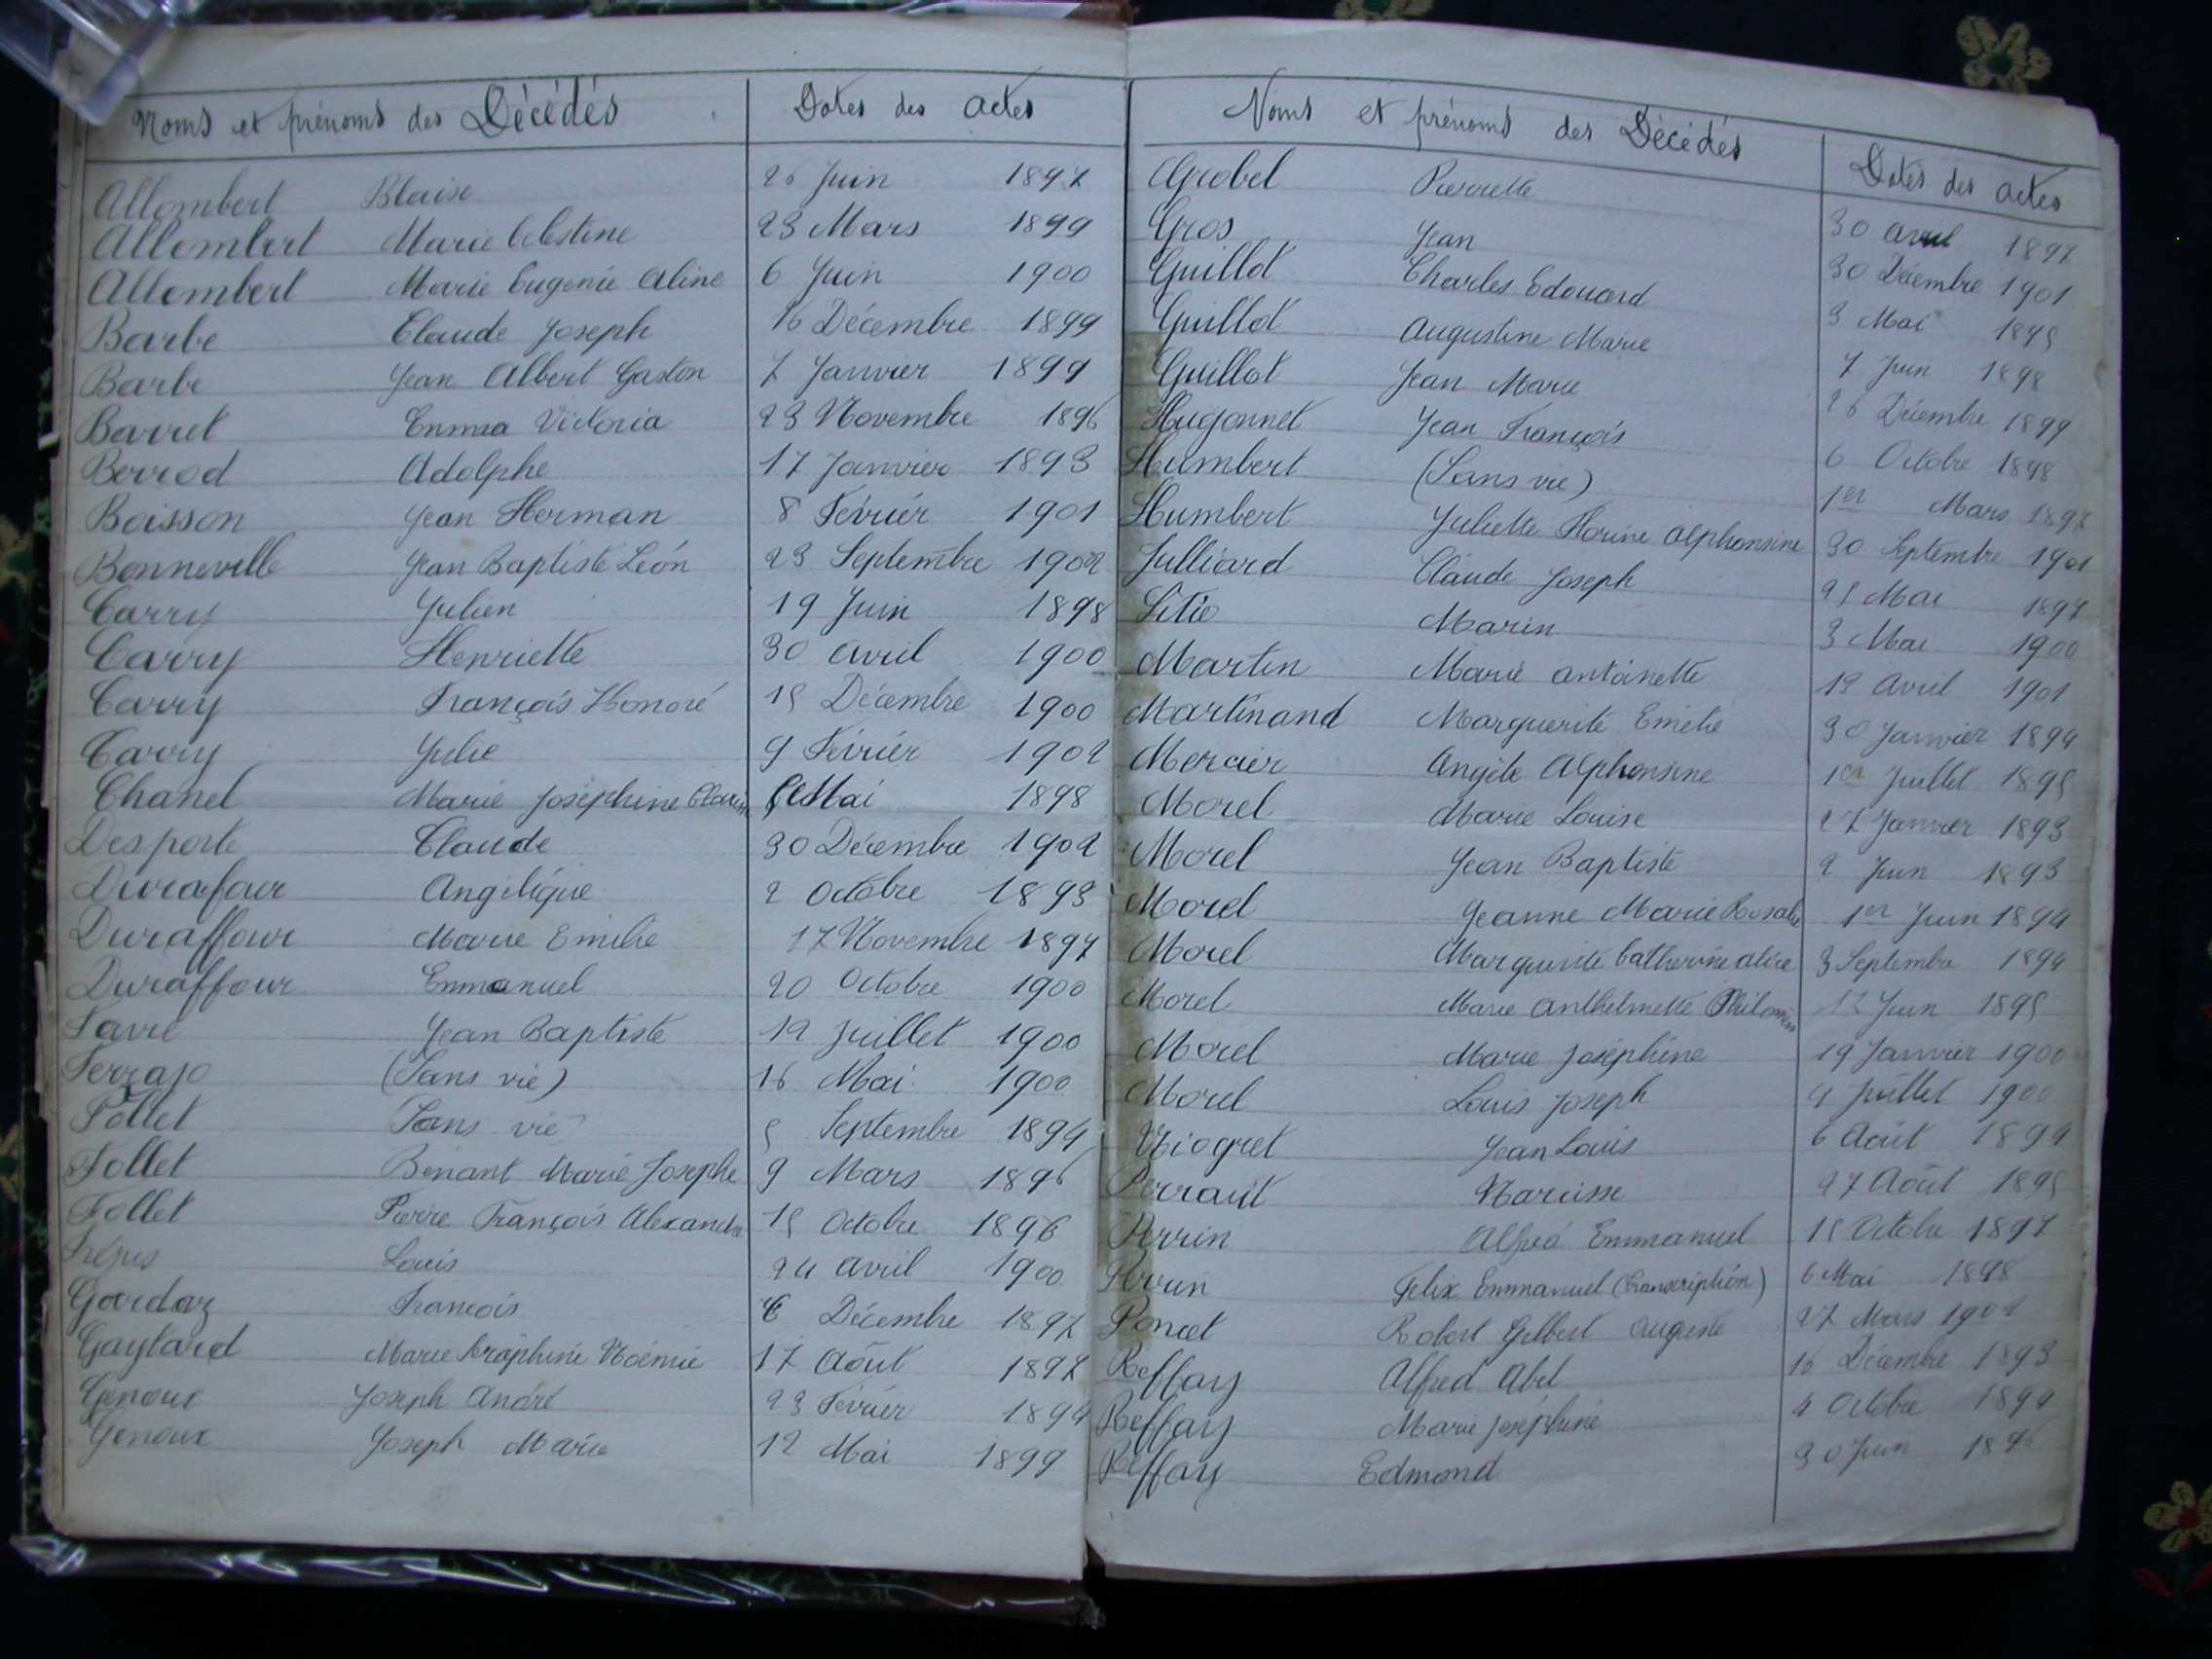 Noms et prénoms des Décédés Dates des actes
Allombert Blaise 26 Juin 1897
Allombert Marie Célestine 23 Mars 1899
Allombert Marie Eugénie Aline 6 Juin 1900
Barbe Claude Joseph 16 Décembre 1899
Barbe Jean Albert Gaston 7 Janvier 1899
Barret Emma Victoria 23 Novembre 1896
Berrod Adolphe 17 Janvier 1893
Boisson Jean Herman 8 Février 1901
Bonneville Jean Baptiste Léon 23 Septembre 1902
Carry Julien 19 Juin 1898
Carry Henriette 30 avril 1900
Carry François Honoré 15 Décembre 1900
Carry Julie 9 Février 1902
Chanel Marie Joséphine Mai 1898
Desporte Claude 30 Décembre 1902
Durafour Angélique 2 Octobre 1893
Duraffour Marie Emélie 17 Novembre 1897
Duraffour Emmanuel 20 Octobre 1900
Favre Jean Baptiste 12 Juillet 1900
Ferrajo (Sans vie) 16 Mai 1900
Follet Sans vie 5 Septembre 1894
Follet Benant Marie Josephe 9 Mars 1896
Follet Pierre François Alexandre 15 Octobre 1896
Louis 24 avril 1900
Gardaz François 6 Décembre 1897
Gaylard Marie Séraphine Noémie 17 Août 1897
Genoux Joseph André 23 Février 1894
Genoux Joseph Marie 12 Mai 1899
Noms et prénoms des Décédés Dates des actes
Grobel Pierrette 30 avril 1897
Gros Jean 30 Décembre 1901
Guillot Charles Edouard 3 Mai 1895
Guillot Augustine Marie 7 Juin 1898
Guillot Jean Marie 26 Décembre 1899
Hugonnet Jean François 6 Octobre 1898
Humbert (Sans vie) 1er Mars 1897
Humbert Juliette Florine Alphonsine 30 Septembre 1901
Julliard Claude Joseph 25 Mai 1897
Marin 3 Mai 1900
Martin Marie antoinette 19 Avril 1901
Martinand Marguerite Emélie 30 Janvier 1894
Mercier Angèle Alphonsine 1er Juillet 1895
Morel Marie Louise 27 Janvier 1893
Morel Jean Baptiste 2 Juin 1893
Morel Jeanne Marie Rosalie 1er Juin 1894
Morel Marguerite Catherine alice 3 Septembre 1894
Morel Marie Anthelmette Philomène Juin 1895
Morel Marie Joséphine 19 Janvier 1900
Morel Louis Joseph 4 Juillet 1900
Niogret Jean Louis 6 Août 1894
Perraut Narcisse 27 Août 1895
Perrin Alfred Emmanuel 15 Octobre 1897
Perrin Felix Emmanuel (Transcription) 6 Mai 1898
Poncet Robert Gilbert Auguste 27 Mars 1902
Reffay Alfred Abel 16 Décembre 1893
Reffay Marie Joséphine 4 Octobre 1894
Reffay Edmond 30 Juin 1896